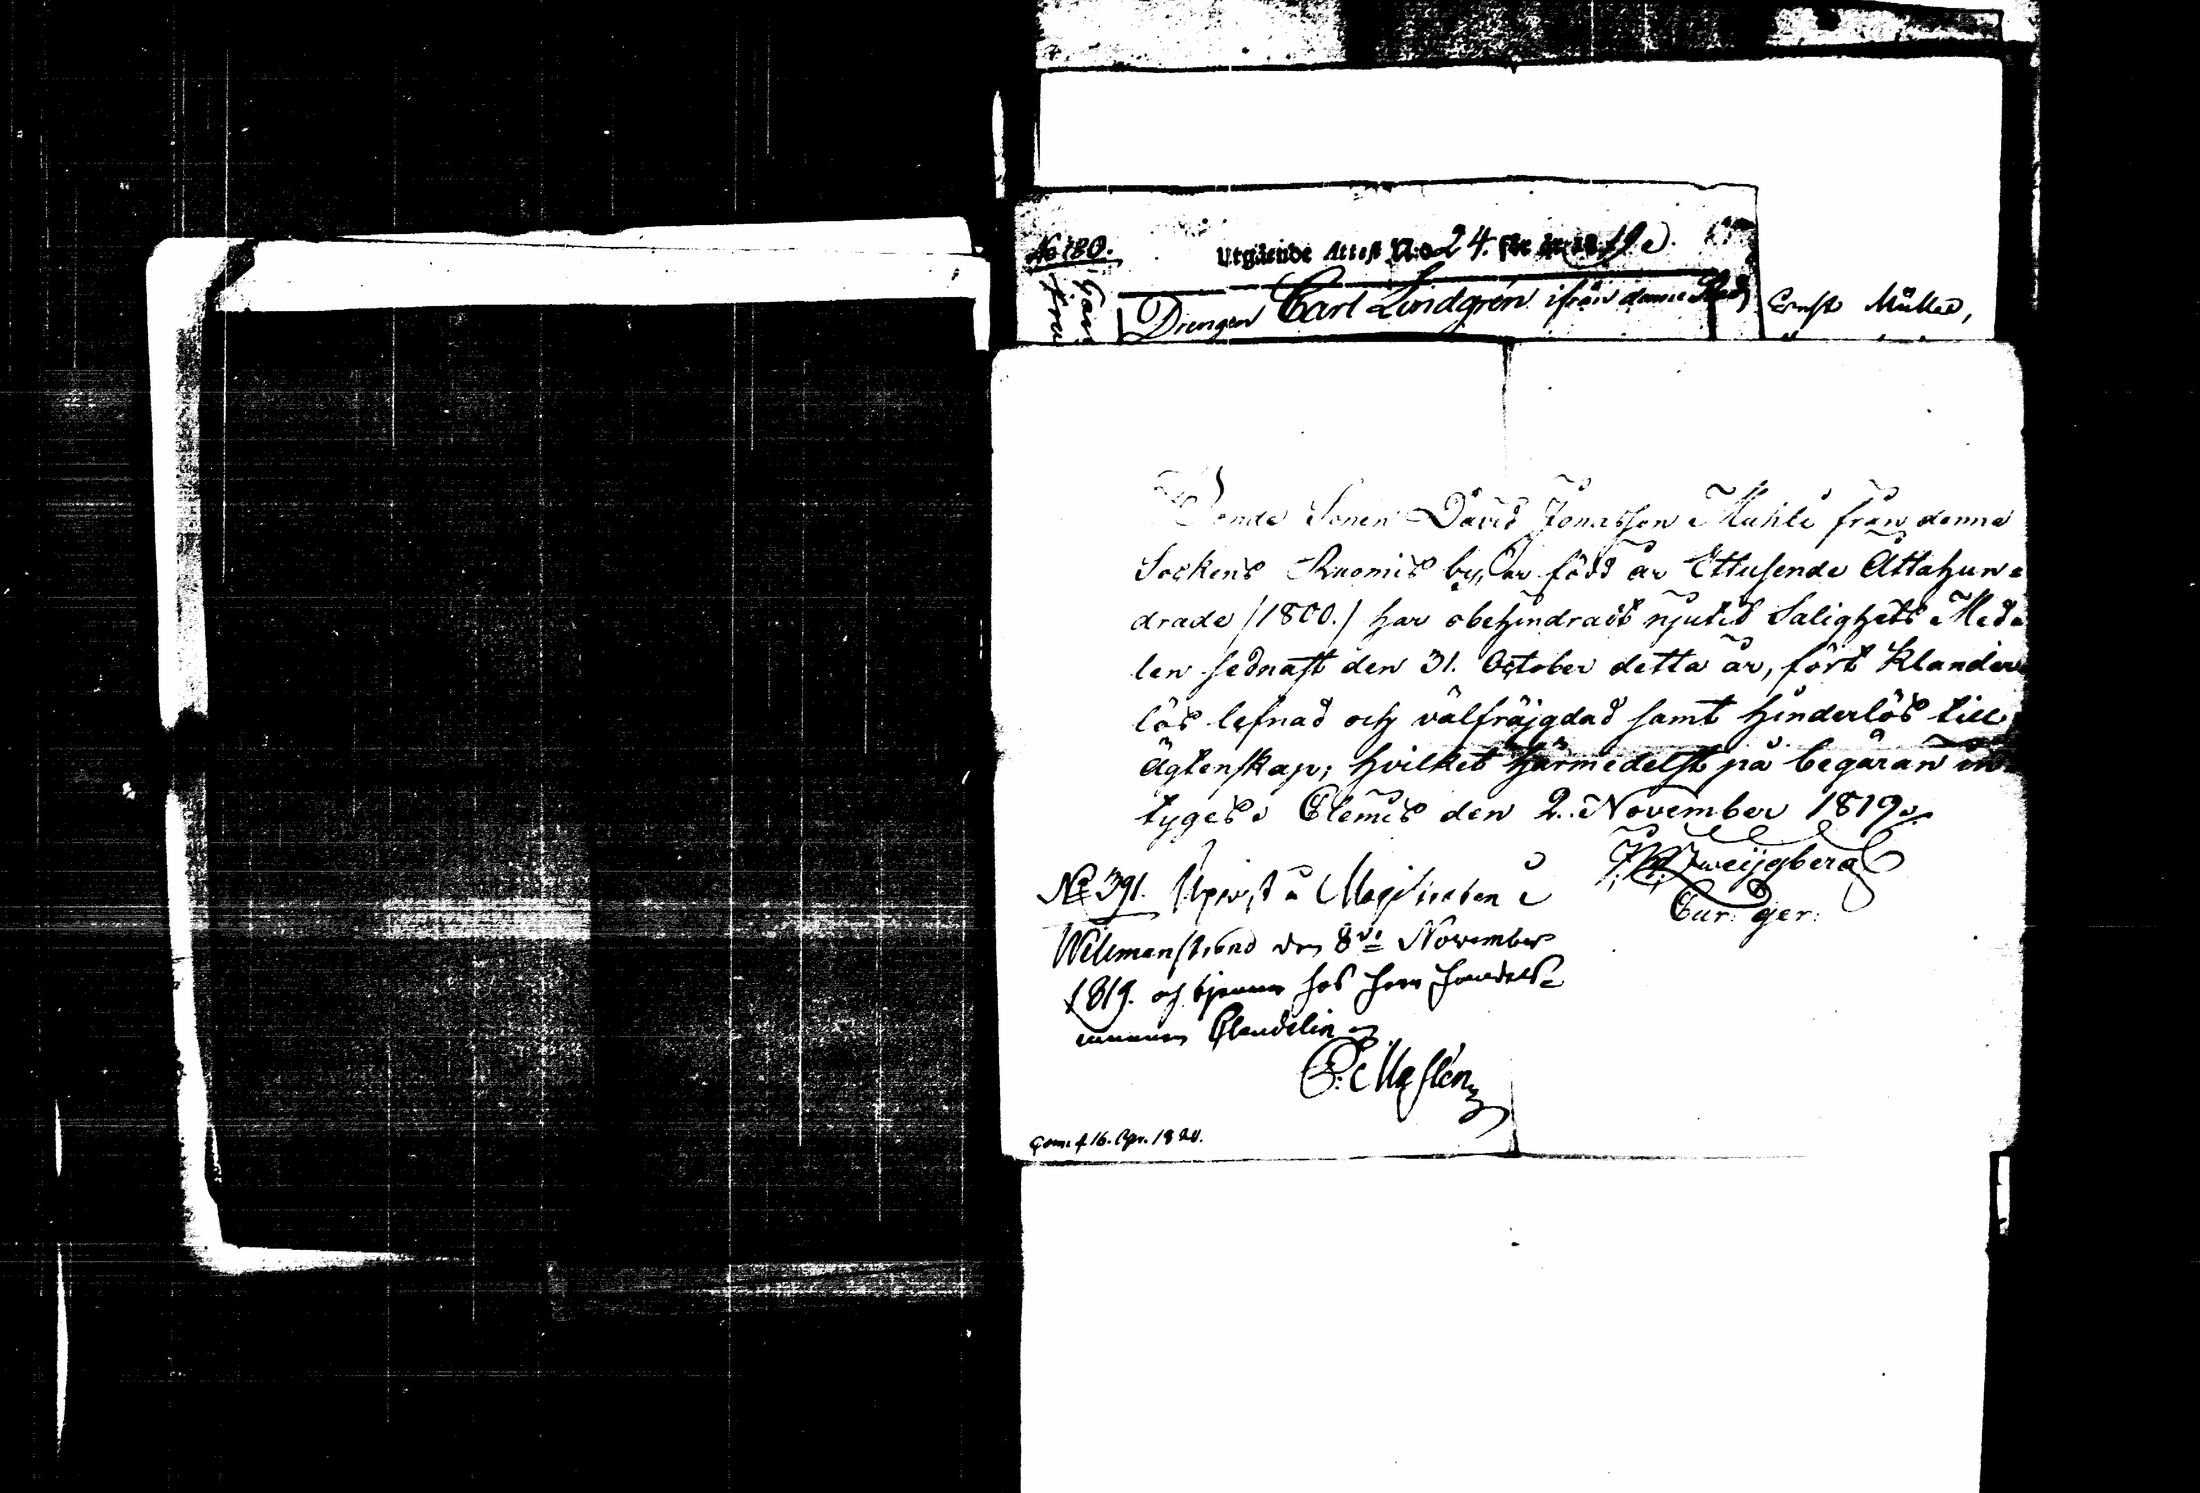 No 180.
Utgående Attest N:o 24. för år 1819.
Drengen Carl Lindgrén ifrån denne Stad
Ernst Müller,
Bonde Sonen David Jonasson Muhli från denne
Sockens Ruomis by, är född år Ettusende Åttahun=
drade /1800./ har obehindradt njutit Salighets Med=
len sednast den 31. October detta år, fört klander
lös lefnad och välfräjgdad samt hinderlös till
Ägtenskap; hvilket härmedelst på begäran in=
tyges. Elemis den 2. November 1819.
Zweijgberg
Cur: ger:
No 391. Upvist i Magistraten i
Wilmanstrand den 8de November
1819. och tjenar hos Herr Handels=
mannen Claudelin
16. Apr. 1820.